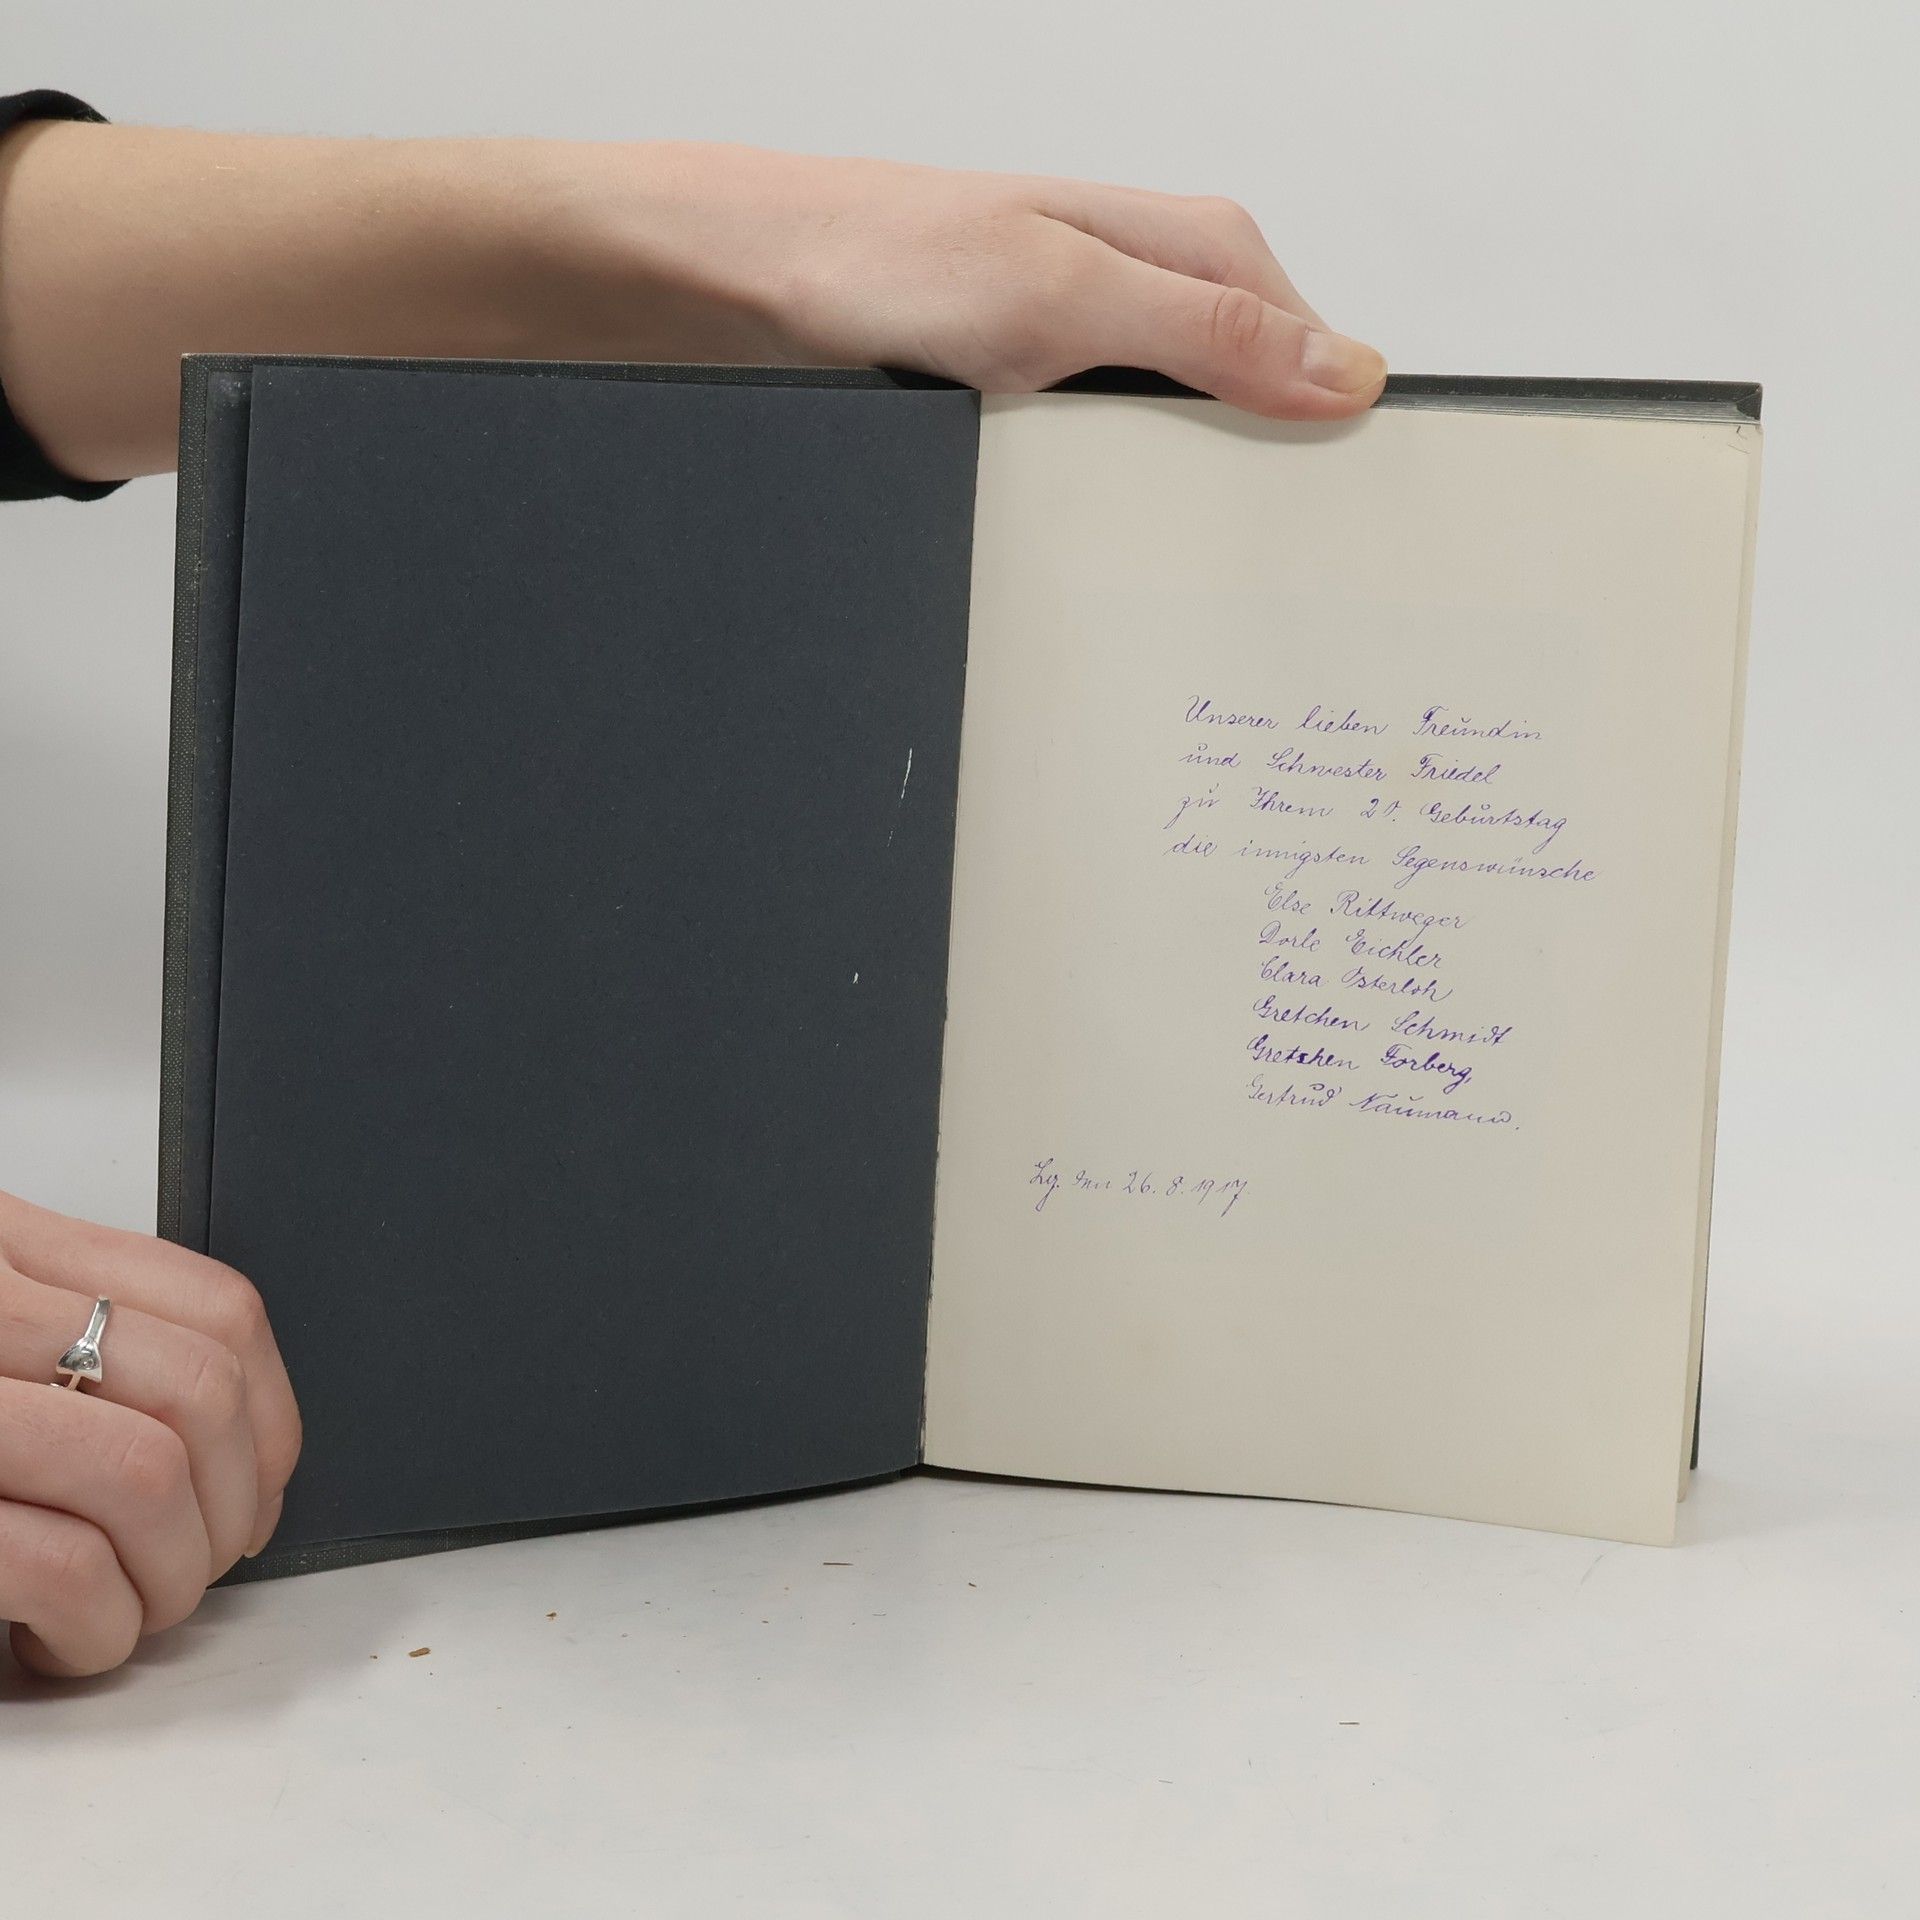 Unserer lieben Freundin
und Schwester Friedel
zu Ihrem 20. Geburtstag
die innigsten Segenswünsche
Else Rittweger
Dorle Eichler
Clara Osterloh
Gretchen Schmidt
Gretchen Forberg,
Gertrud Naumann.
Lg. den 26. 8. 1917.